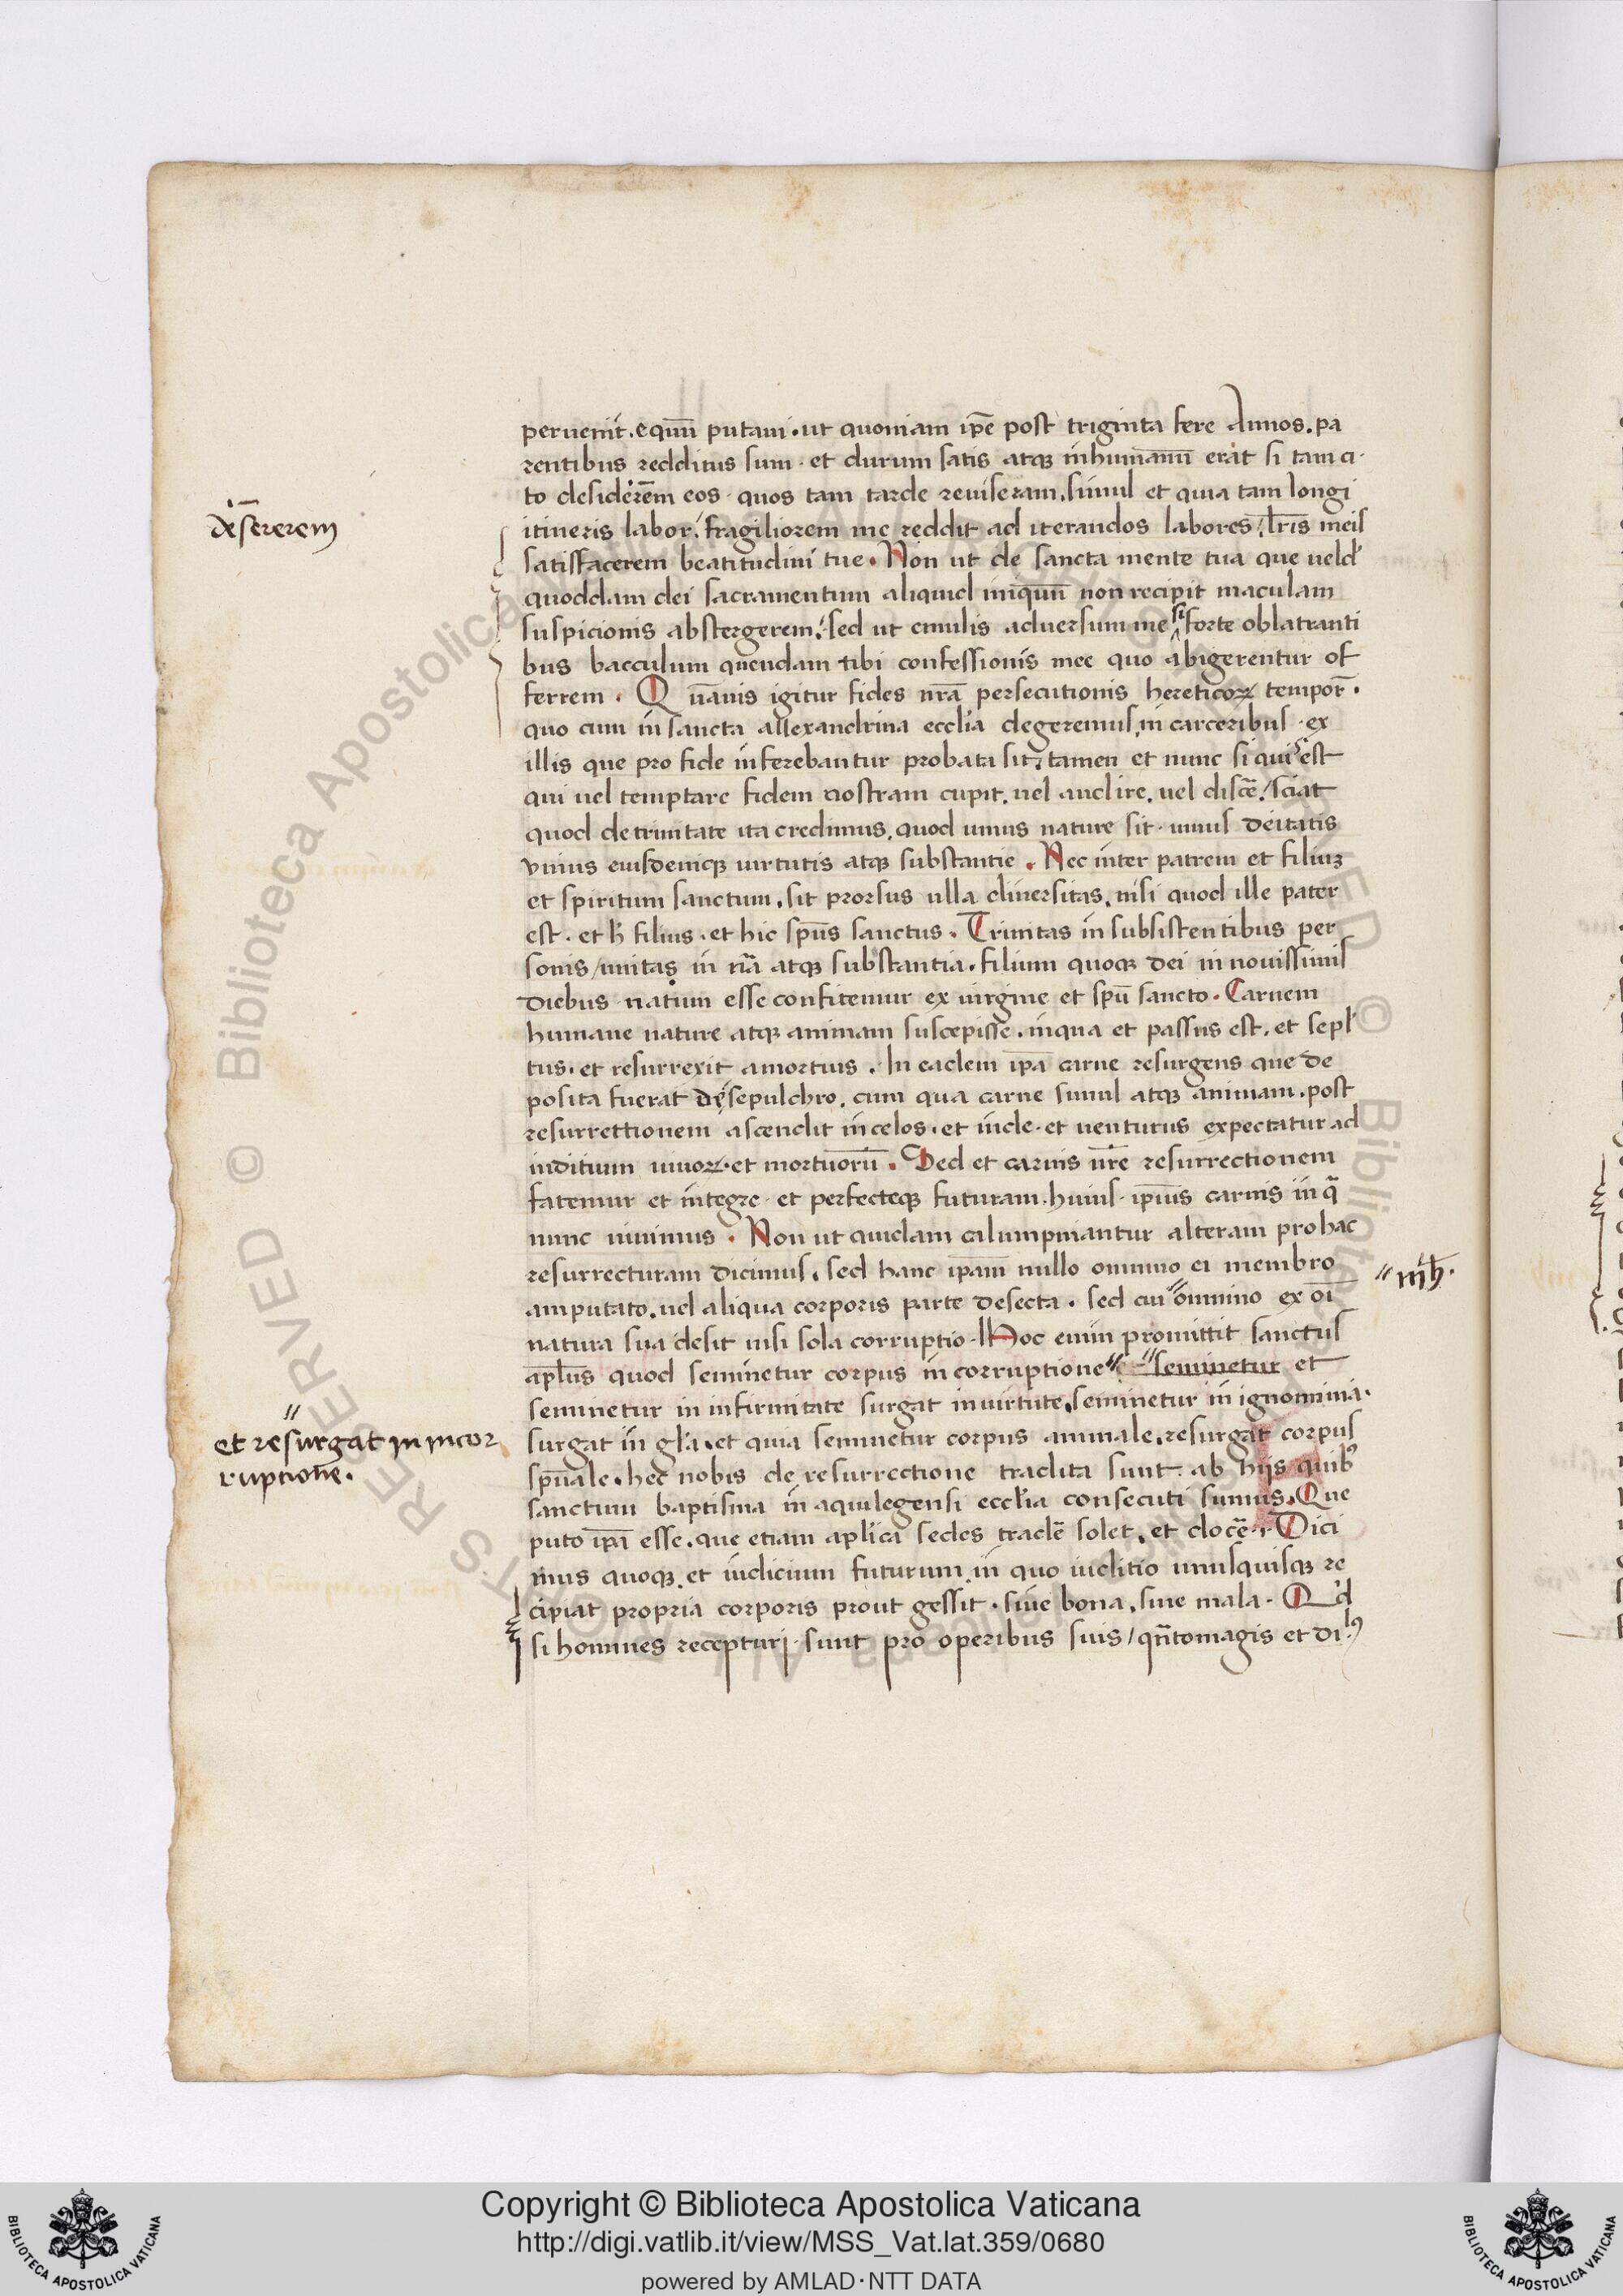 peruenit. equū putaui. ut quoniam ip̄e post triginta fere Annos. pa
rentibus redditus sum. et durum satis atqꝫ inhumanū erat si tam ci.
to desiderēm eos. quos tam tarde reuiseram. simul et quia tam longi
desererem
itineris labor. fragiliorem me reddit ad iterandos labores / lr̄is meis
satisfacerem beatitudini tue. Non ut de sancta mente tua que
quoddam dei sacramentum aliquid iniquū non recipit maculam
suspicionis abstergerem. sed ut emulis aduersum me si forte oblatranti
bus bacculum quendam tibi confessionis mee quo abigerentur of
ferrem. Quāuis igitur fides nr̄a persecutionis hereticoꝝ tempor̄.
quo cum in sancta allexandrina eccl̄ia degeremus. in carceribus. ex
illis que pro fide inferebantur probata sit. tamen et nunc si quis est
qui uel temptare fidem nostram cupit. uel audire. uel discē. / sciat
quod de trinitate ita credimus. quod unius nature sit. unius deitatis
vnius eiusdemqꝫ uirtutis atqꝫ substantie. Nec inter patrem et filiuꝫ
et spiritum sanctum. sit prorsus ulla diuersitas. nisi quod ille pater
est. et h̄ filius. et hic sp̄us sanctus. Trinitas in subsistentibus per
sonis / unitas in nā atqꝫ substantia. filium quoqꝫ dei in nouissimis
diebus natum esse confitemur ex uirgine et sp̄u sancto. Carnem
humane nature atqꝫ animam suscepisse. inqua et passus est. et sepl̄
tus. et resurrexit amortuis. In eadem ip̄a carne resurgens que de
posita fuerat de sepulchro. cum qua carne simul atqꝫ animam. post
resurrettionem ascendit in celos. et inde. et uenturus expectatur ad
iuditium uiuoꝝ. et mortuorū. Ded et carnis nr̄e resurrectionem
fatemur et integre. et perfecteqꝫ futuram. huius. ip̄ius carnis in qᵃ
nunc uiuimus. Non ut quidam calumpniantur alteram prohac
resurrecturam dicimus. sed hanc ip̄am nullo omnino ei membro
amputato. uel aliqua corporis parte desecta. sed cui " omnino ex oī
" nih̄.
natura sua desit nisi sola corruptio. Hoc enim promittit sanctus
apl̄us quod seminetur corpus in corruptione " " seminetur et
seminetur in infirmitate surgat inuirtute. seminetur in ignominia.
" et resurgat in incor
ruptione.
surgat in gl̄a. et quia seminetur corpus animale. resurgat corpus
sp̄uale. hec nobis de resurrectione tradita sunt. ab hijs quibꝰ
sanctum baptisma in aquilegensi eccl̄ia consecuti sumus. Que
puto ip̄a esse. que etiam apl̄ica sedes tradē solet. et docē. Dici
mus quoqꝫ et iudicium futurum. in quo iuditio unusquisqꝫ re
cipiat propria corporis prout gessit. siue bona. siue mala. Qd
si homines recepturi sunt pro operibus suis / qn̄tomagis et
Copyright © Biblioteca Apostolica Vaticana
http://digi.vatlib.it/view/MSS_Vat.lat.359/0680
powered by AMLAD·NTT DATA
BIBLIOTECA APOSTOLICA VATICANA
BIBLIOTECA APOSTOLICA VATICANA